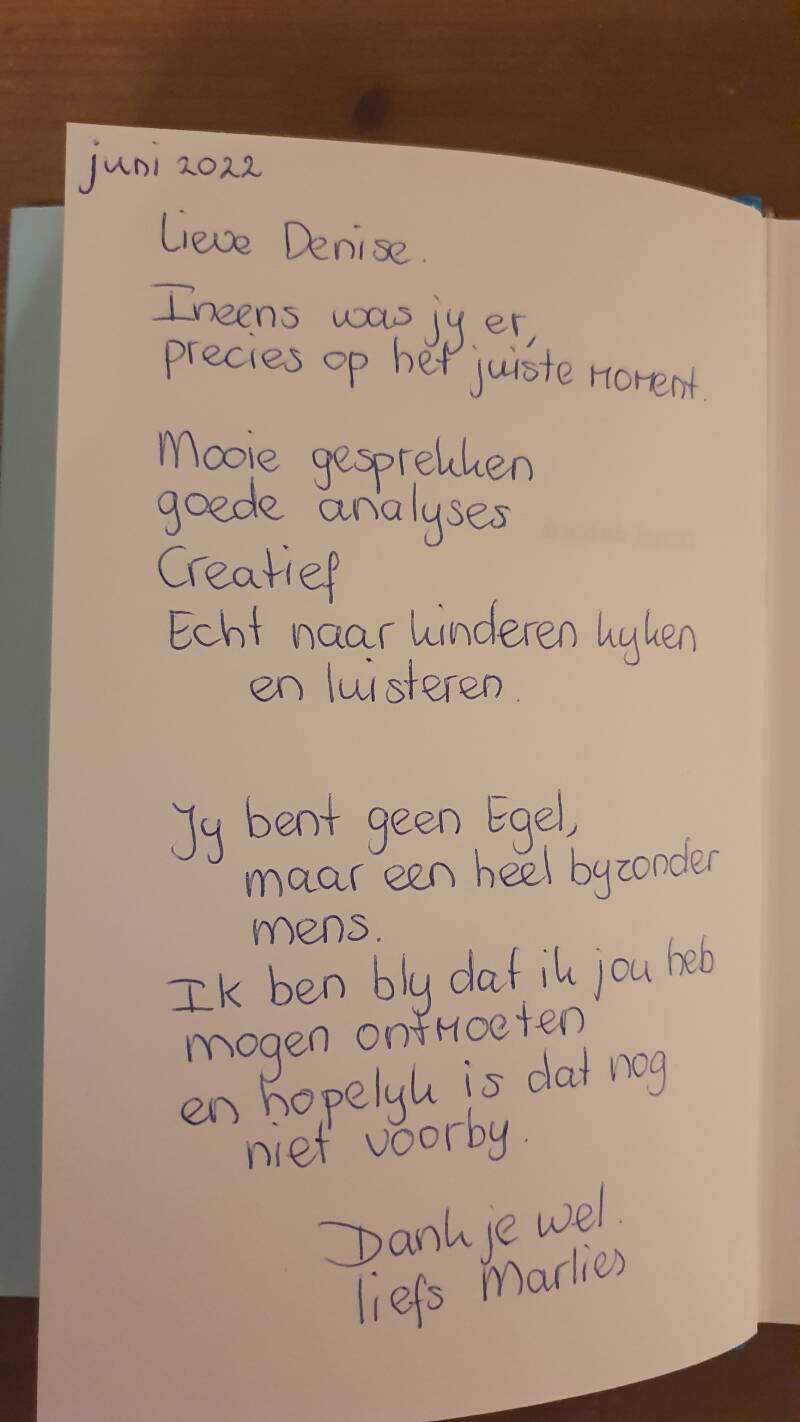 juni 2022
Lieve Denise.
Ineens was jy er,
precies op het juiste moment.
Mooie gesprekken
goede analyses
Creatief
Echt naar kinderen kyken
en luisteren.
Jy bent geen Egel,
maar een heel byzonder
mens.
Ik ben bly dat ik jou heb
mogen ontmoeten
en hopelyk is dat nog
niet voorby.
Dank je wel.
liefs Marlies